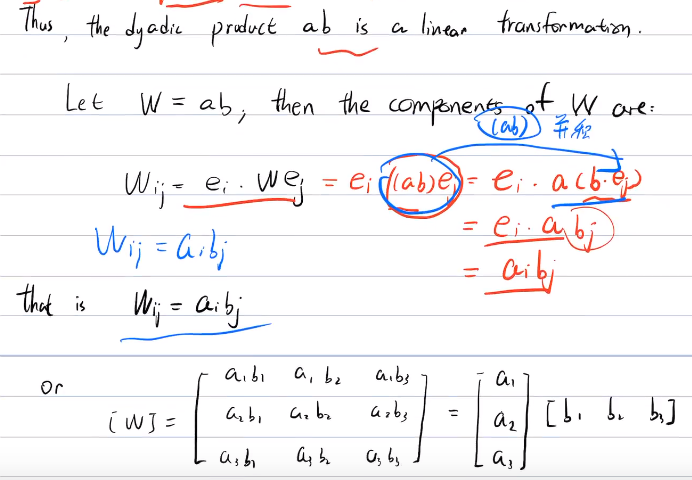 Thus, the dyadic product ab is a linear transformation.
Let W = ab, then the components of W are:
(ab) 并积
Wij = ei · Wej = ei ((ab)ej) = ei · a(b·ej)
= ei · a bj
Wij = aibj
= aibj
that is Wij = aibj
or
[W] = [ a1b1 a1b2 a1b3
a2b1 a2b2 a2b3
a3b1 a3b2 a3b3 ] = [ a1
a2
a3 ] [b1 b2 b3]